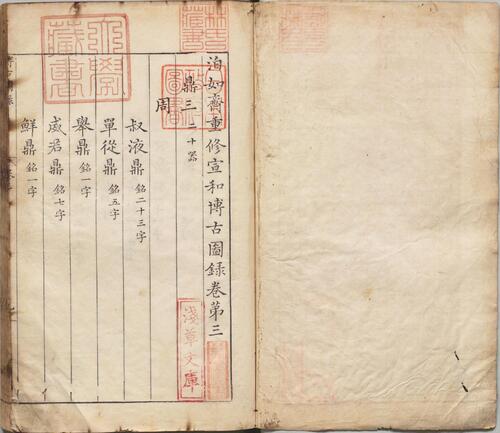 泊如齋重修宣和博古圖錄卷第三
鼎三 二十器
周
叔液鼎 銘二十三字
單從鼎 銘五字
舉鼎 銘一字
威君鼎 銘七字
鮮鼎 銘一字
淺草文庫
藏書